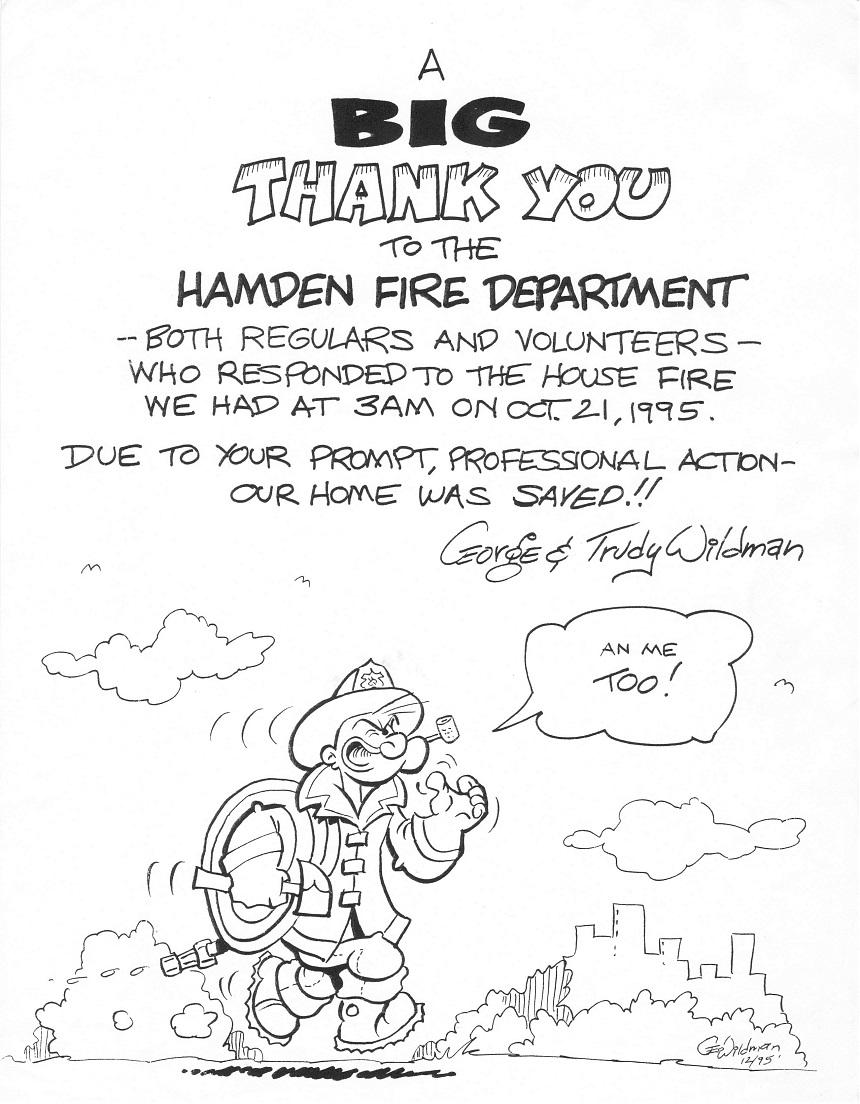 A
BIG
THANK YOU
TO THE
HAMDEN FIRE DEPARTMENT
-- BOTH REGULARS AND VOLUNTEERS --
WHO RESPONDED TO THE HOUSE FIRE
WE HAD AT 3AM ON OCT. 21, 1995.
DUE TO YOUR PROMPT, PROFESSIONAL ACTION-
OUR HOME WAS SAVED!!
George & Trudy Wildman
AN ME
TOO!
GEOWildman
12/95